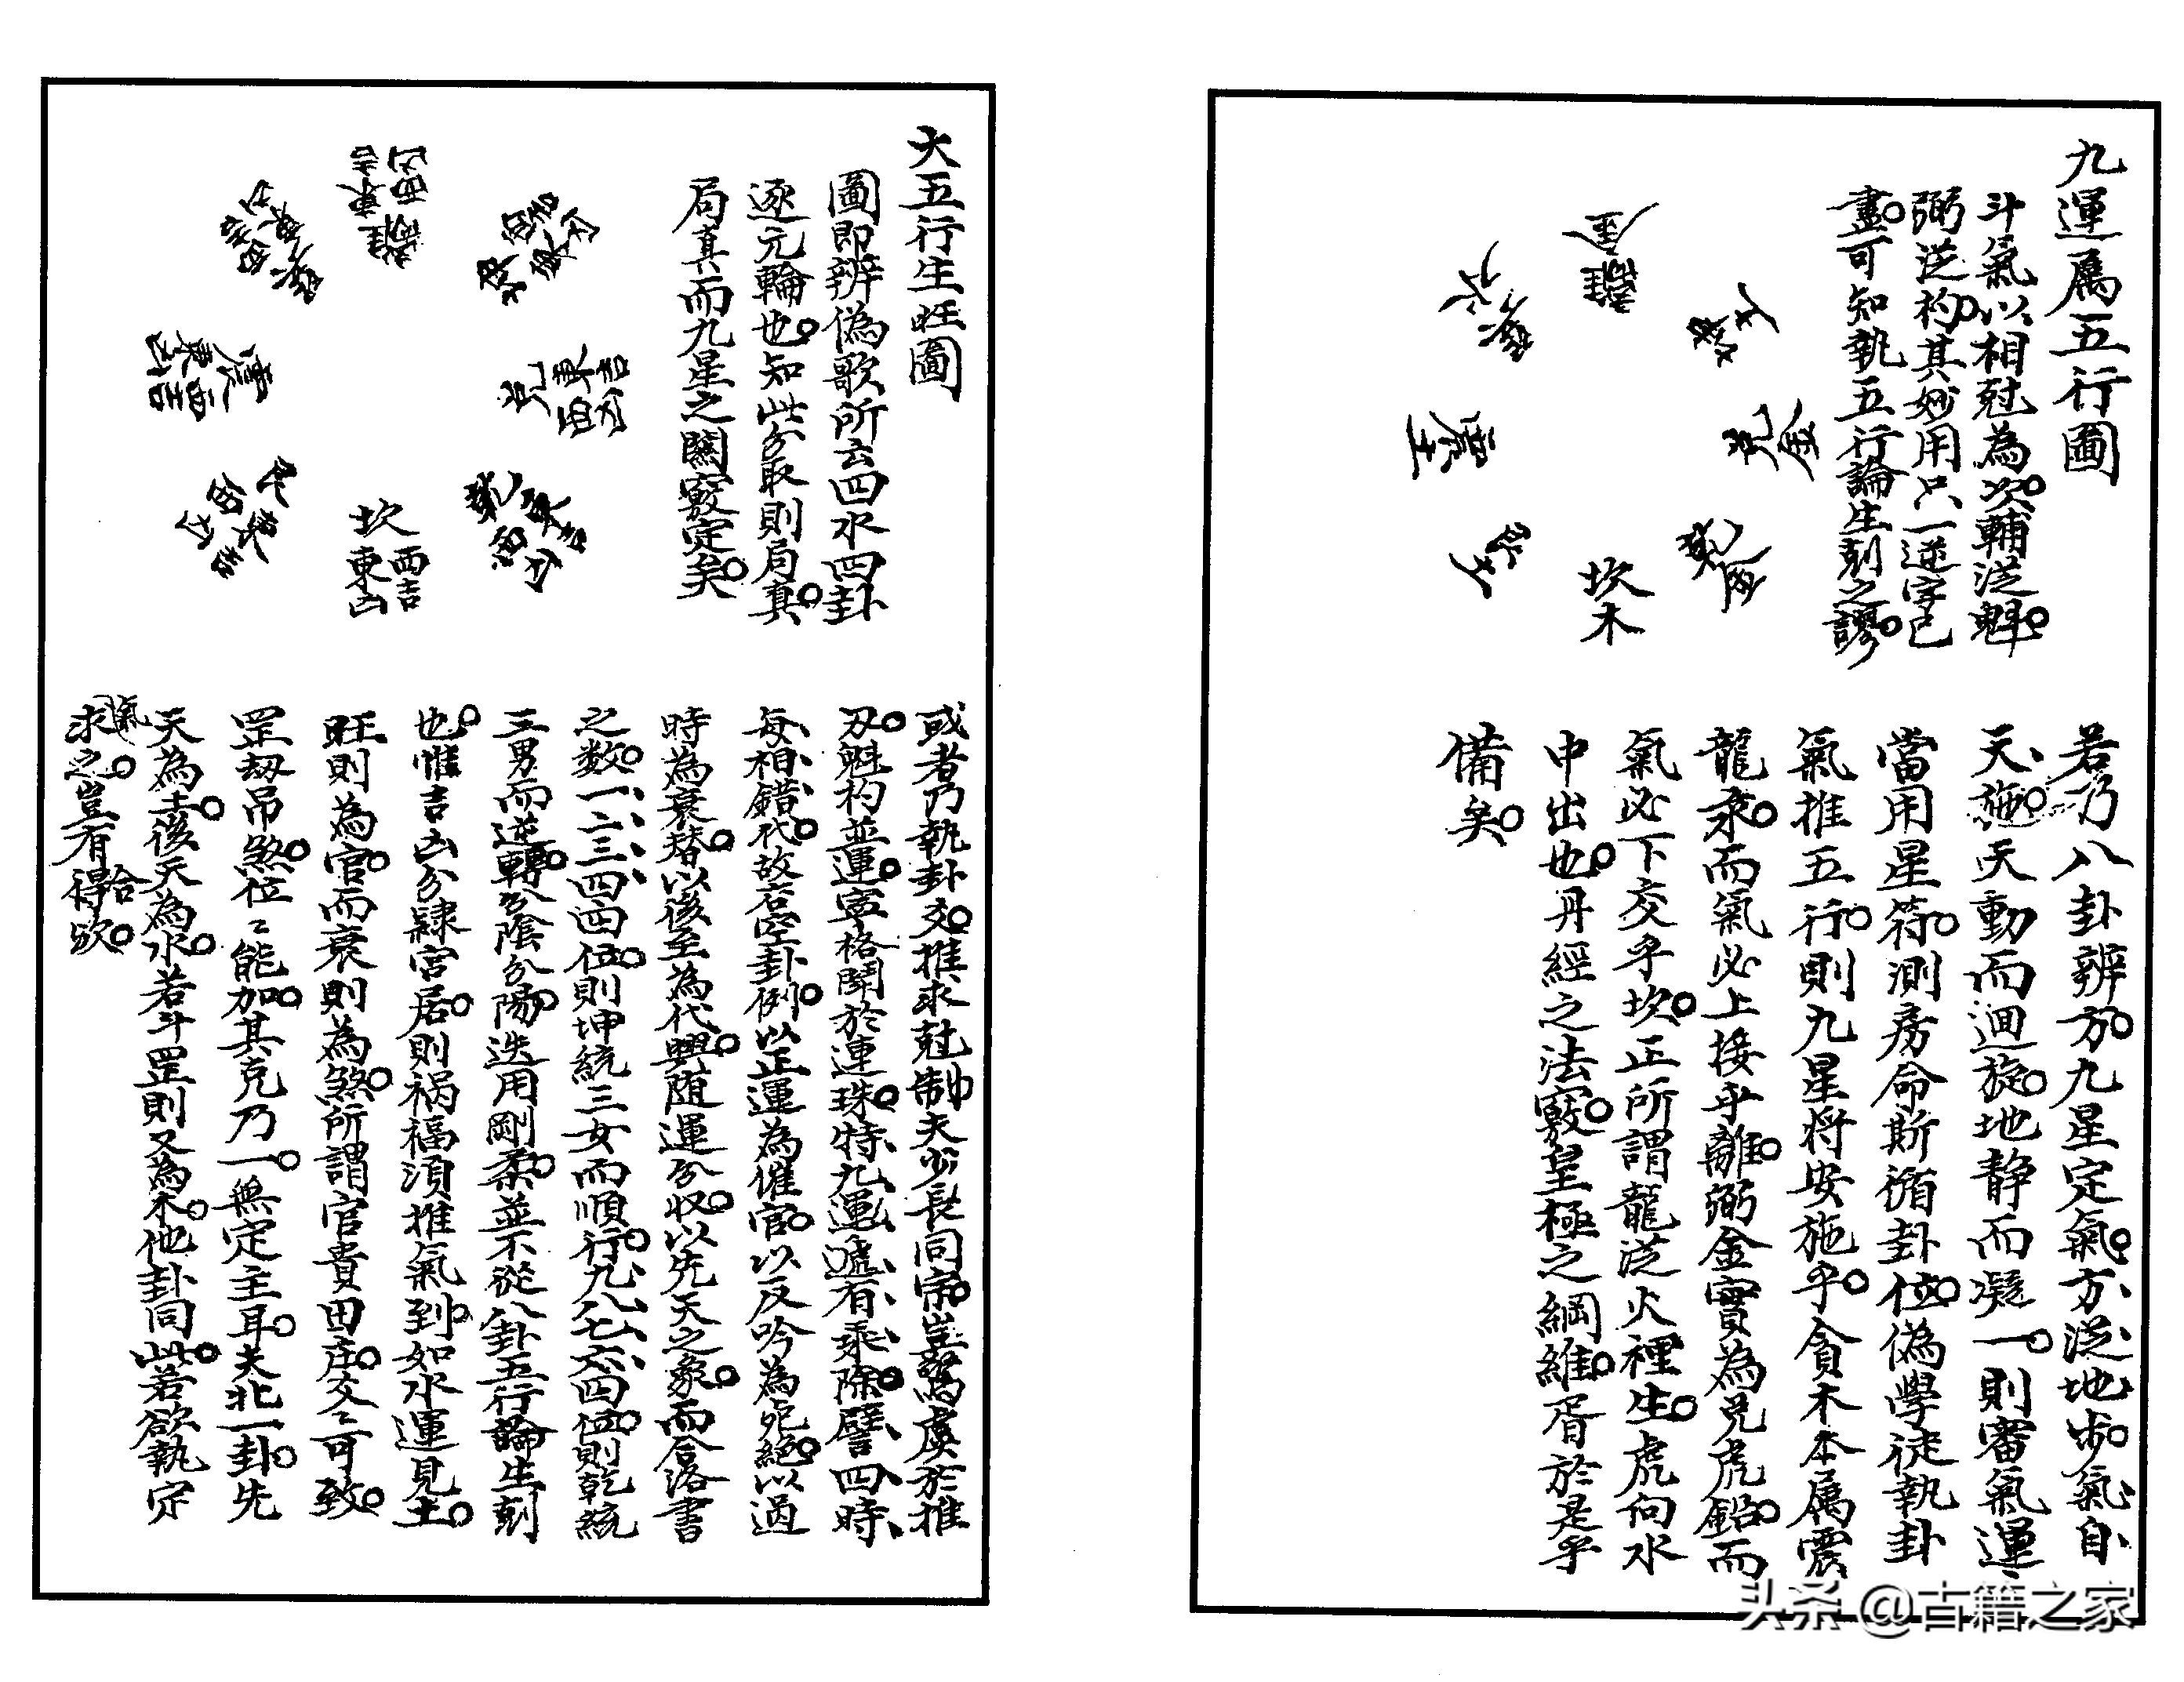 九運属五行圖
斗氣以相尅為次輔從魁
弼從杓其妙用只一逆字已
盡可知執五行論生剋之謬
離
金
兌
坎
木
乾
震
土
若乃八卦辨方九星定氣方從地步氣自
天施天動而迴旋地静而凝一則審氣運
當用星符測房命斯循卦位偽學徒執卦
氣推五行則九星将安施乎貪木本属震
龍汞而氣必上接乎離弼金實為兌虎鉛而
氣必下交乎坎正所謂龍從火裡生虎向水
中出也丹經之法竅皇極之綱維胥於是乎
備矣
大五行生旺圖
圖即辨偽歌所云四水四卦
逐元輪也知此分取則局真
局真而九星之關竅定矣
離
東吉
西凶
兌
東吉
西凶
坎
西吉
東凶
震
西吉
東凶
或者乃執卦爻推求尅制夫少長同宗豈
刃魁杓並運寧格鬪於連珠特九運遞有乘除譬四時
每相錯代故若空卦例以正運為催官以反吟為死絕以過
時為衰替以後至為代興随運分収以先天之象而合洛書
之数一二三四四位則坤統三女而順行九八七六四位則乾統
三男而逆轉分陰分陽迭用剛柔並不從八卦五行論生剋
也惟吉凶分隸宮居則禍福須推氣到如水運見土
旺則為官而衰則為煞所謂官貴田庄交〻可致
罡劫吊煞位〻能加其克乃一無定主耳夫北一卦先
天為土後天為水若斗罡則又為木他卦同此若欲執定
氣
求之豈有得合欤
头条 @古籍之家